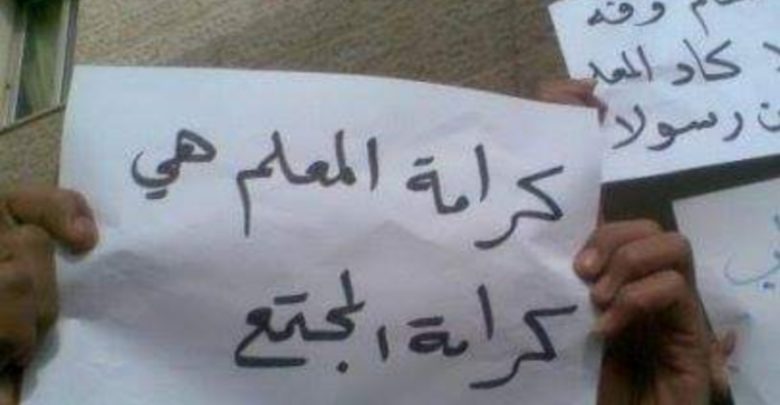 كرامة المعلم هي
كرامة المجتمع
وفه
كاد المعل
ن رسولا